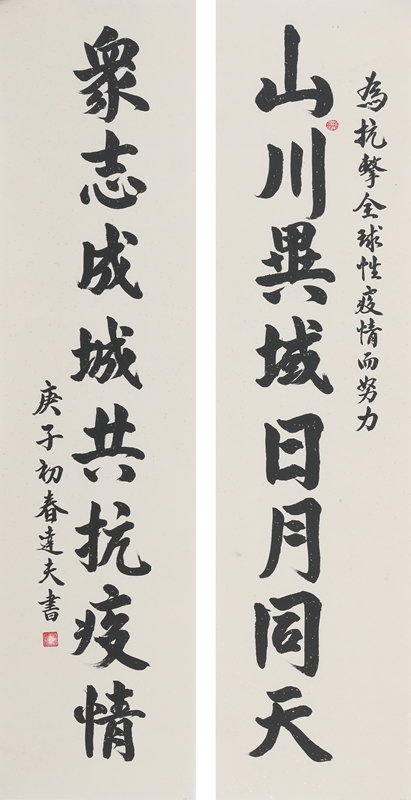 為抗擊全球性疫情而努力
山川異域日月同天
衆志成城共抗疫情
庚子初春達夫書